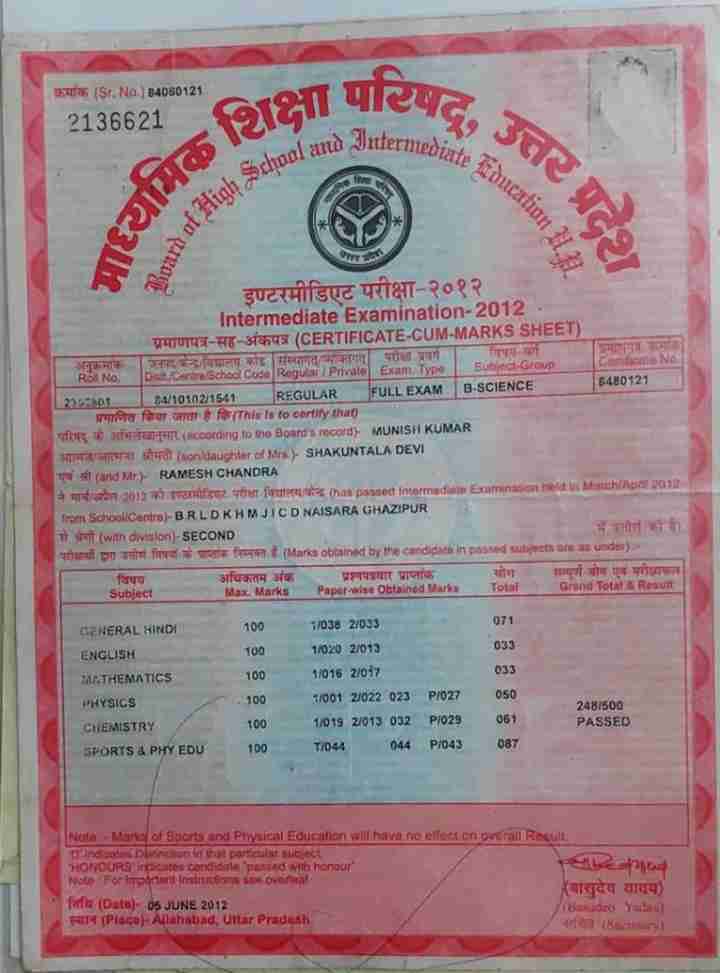 क्रमांक (Sr. No.) 84060121
2136621
माध्यमिक शिक्षा परिषद्, उत्तर प्रदेश
Board of High School and Intermediate Education U.P.
इण्टरमीडिएट परीक्षा-२०१२
Intermediate Examination-2012
प्रमाणपत्र-सह-अंकपत्र (CERTIFICATE-CUM-MARKS SHEET)
अनुक्रमांक जनपद/केन्द्र/विद्यालय कोड संस्थागत/व्यक्तिगत परीक्षा प्रवर्ग विषय-वर्ग प्रमाणपत्र क्रमांक
Roll No. Distt./Centre/School Code Regular / Private Exam. Type Subject-Group Certificate No.
84/10102/1541 REGULAR FULL EXAM B-SCIENCE 6480121
प्रमाणित किया जाता है कि (This is to certify that)
परिषद् के अभिलेखानुसार (according to the Board's record)- MUNISH KUMAR
आत्मज/आत्मजा श्रीमती (son/daughter of Mrs.)- SHAKUNTALA DEVI
एवं श्री (and Mr.)- RAMESH CHANDRA
ने मार्च/अप्रैल 2012 की इण्टरमीडिएट परीक्षा विद्यालय/केन्द्र (has passed Intermediate Examination held in March/April 2012
from School/Centre)- B R L D K H M J I C D NAISARA GHAZIPUR
से श्रेणी (with division)- SECOND में उत्तीर्ण की है।
परीक्षार्थी द्वारा उत्तीर्ण विषयों के प्राप्तांक निम्नवत हैं (Marks obtained by the candidate in passed subjects are as under) :-
विषय अधिकतम अंक प्रश्नपत्रवार प्राप्तांक योग सम्पूर्ण योग एवं परीक्षाफल
Subject Max. Marks Paper-wise Obtained Marks Total Grand Total & Result
GENERAL HINDI 100 1/038 2/033 071
ENGLISH 100 1/020 2/013 033
MATHEMATICS 100 1/016 2/017 033
PHYSICS 100 1/001 2/022 023 P/027 050
248/500
CHEMISTRY 100 1/019 2/013 032 P/029 061
PASSED
SPORTS & PHY EDU 100 T/044 044 P/043 087
Note :- Marks of Sports and Physical Education will have no effect on overall Result.
'D' indicates Distinction in that particular subject.
'HONOURS' indicates candidate 'passed with honour'
Note : For Important Instructions see overleaf
तिथि (Date)- 05 JUNE 2012
स्थान (Place)- Allahabad, Uttar Pradesh
(बासुदेव यादव)
(Basudeo Yadav)
सचिव (Secretary)